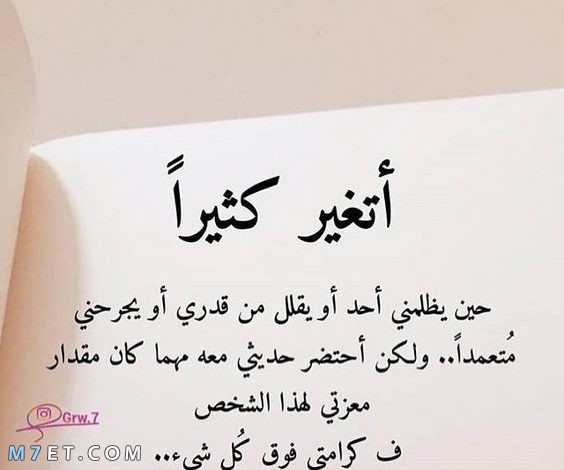 أتغير كثيراً
حين يظلمني أحد أو يقلل من قدري أو يجرحني
مُتعمداً.. ولكن أحتضر حديثي معه مهما كان مقدار
معزتي لهذا الشخص
ف كرامتي فوق كُل شيء..
Grw.7
M7ET.COM